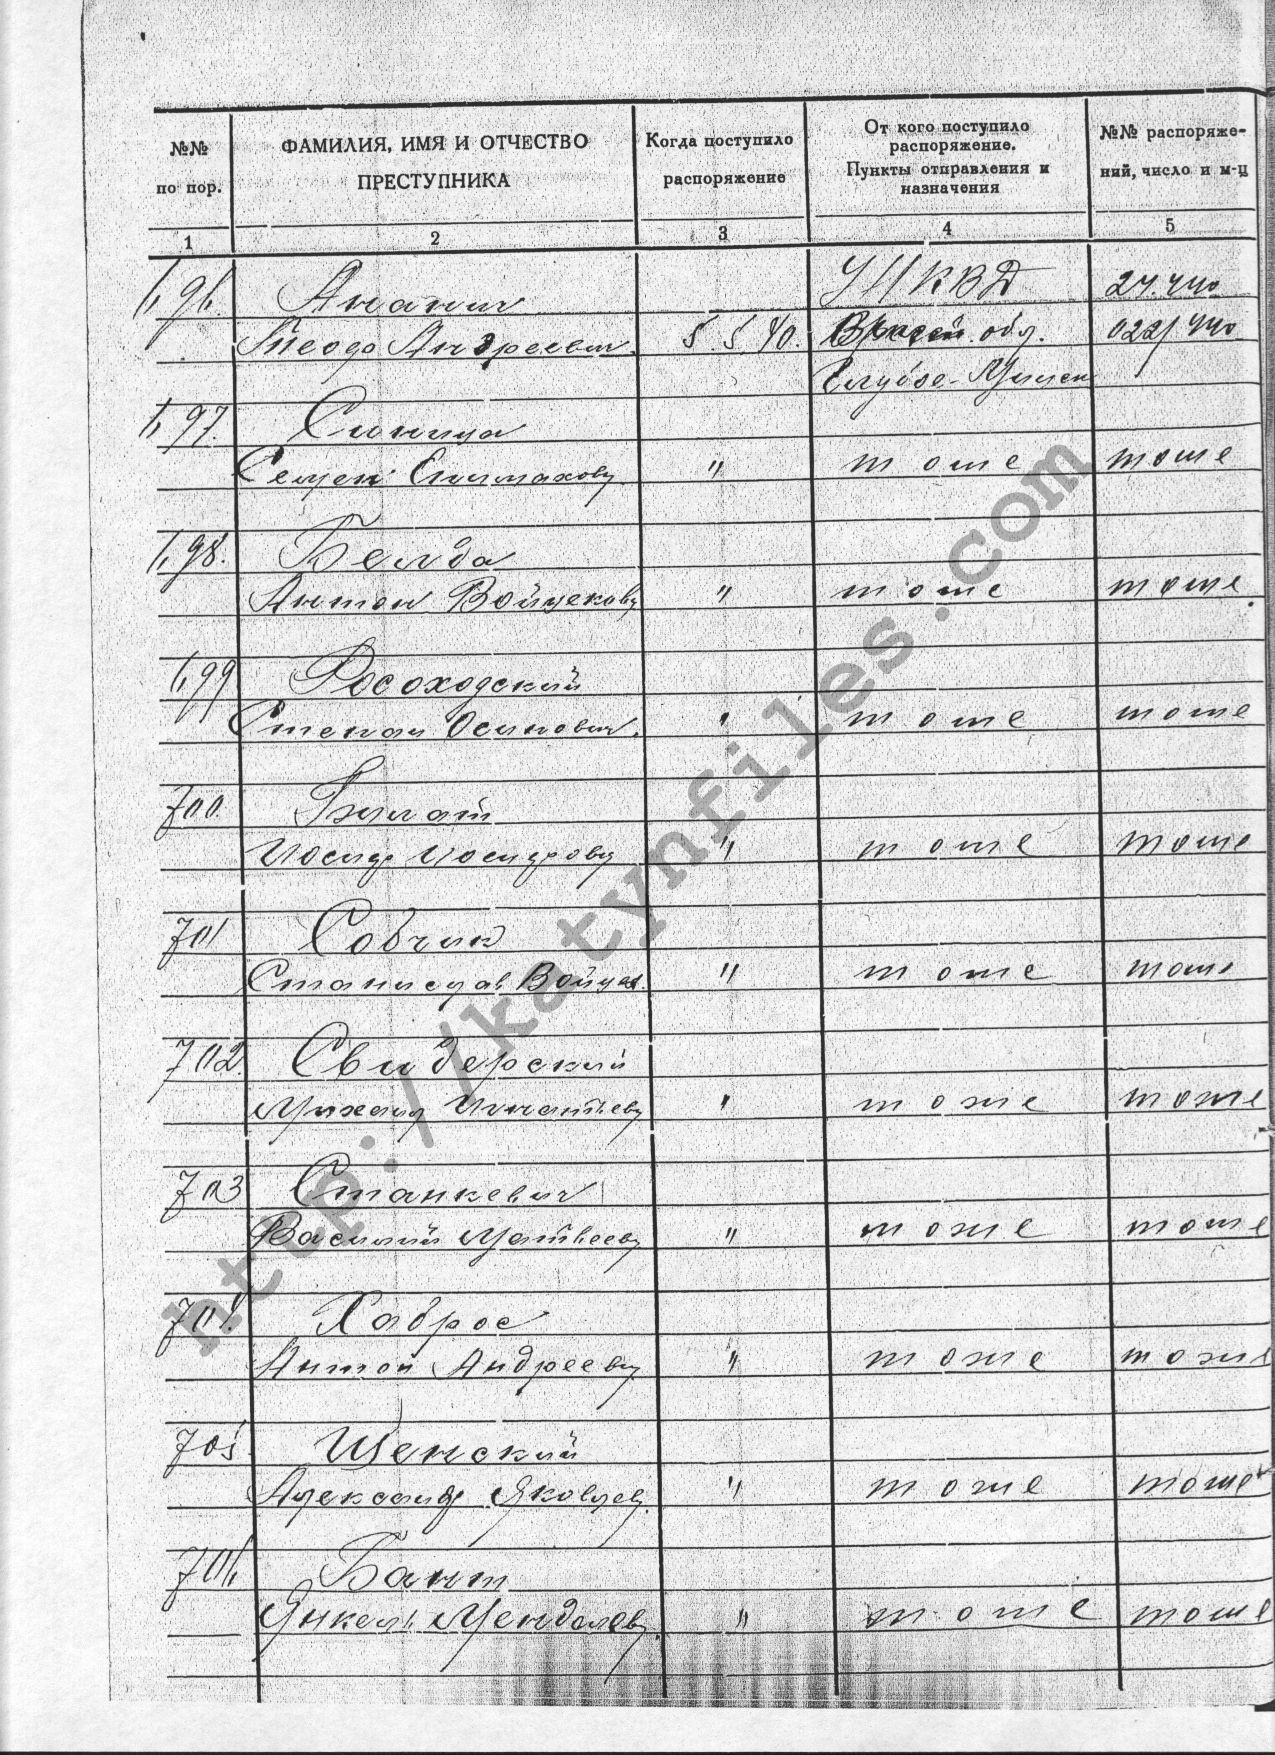 №№ по пор.
ФАМИЛИЯ, ИМЯ И ОТЧЕСТВО ПРЕСТУПНИКА
Когда поступило распоряжение
От кого поступило распоряжение. Пункты отправления и назначения
№№ распоряжений, число и м-ц
1 2 3 4 5
696. Ананич УНКВД
Андреевич 5.5.40. обл.
Глубок-Минск
697. Синица
Семен " тоже тоже
698. Белда
Антон Войцехову " тоже тоже
699 Росоходский
Степан Осипович. " тоже тоже
700 Булат
Иосиф Иосифову " тоже тоже
701 Собчик
Станислав " тоже тоже
702. Свидерский
Михаил Игнатьеву " тоже тоже
703 Станкевич
Василий Матвееву " тоже тоже
704. Хаброс
Антон Андрееву " тоже тоже
705. Щенский
Александр Яковлев. " тоже тоже
706 Бант
Янкель Менделеву. " тоже тоже
http://katynfiles.com